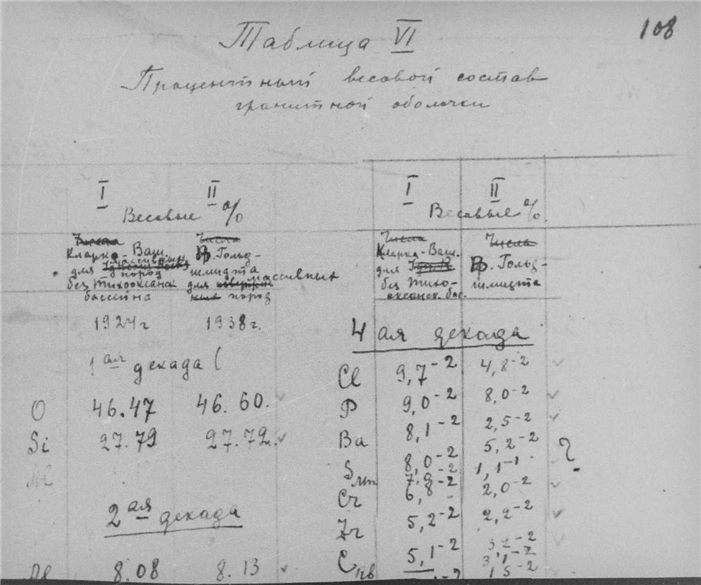 108
Таблица VI
Процентный весовой состав
гранитной оболочки
I II
Весовые %
Числа
Кларка-Ваш.
для массивных
пород
без Тихоокеанск.
бассейна
1924 г
Числа
В. Гольд-
шмидта
для массивных
пород
1938 г.
1ая декада (
O 46.47 46.60
Si 27.79 27.72
2ая декада
Al 8.08 8.13
I II
Весовые %
Числа
Кларка-Ваш.
для
без Тихо-
океанск. бас.
Числа
В. Гольд-
шмидта
4ая декада
Cl 9,7-2 4,8-2
P 9,0-2 8,0-2
Ba 8,1-2 2,5-2
S 8,0-2 5,2-2 ?
Mn 7.8-2 1,1-1
Cr 6,8-2 2,0-2
Zr 5,2-2 2,2-2
C 5,1-2 3,2-2